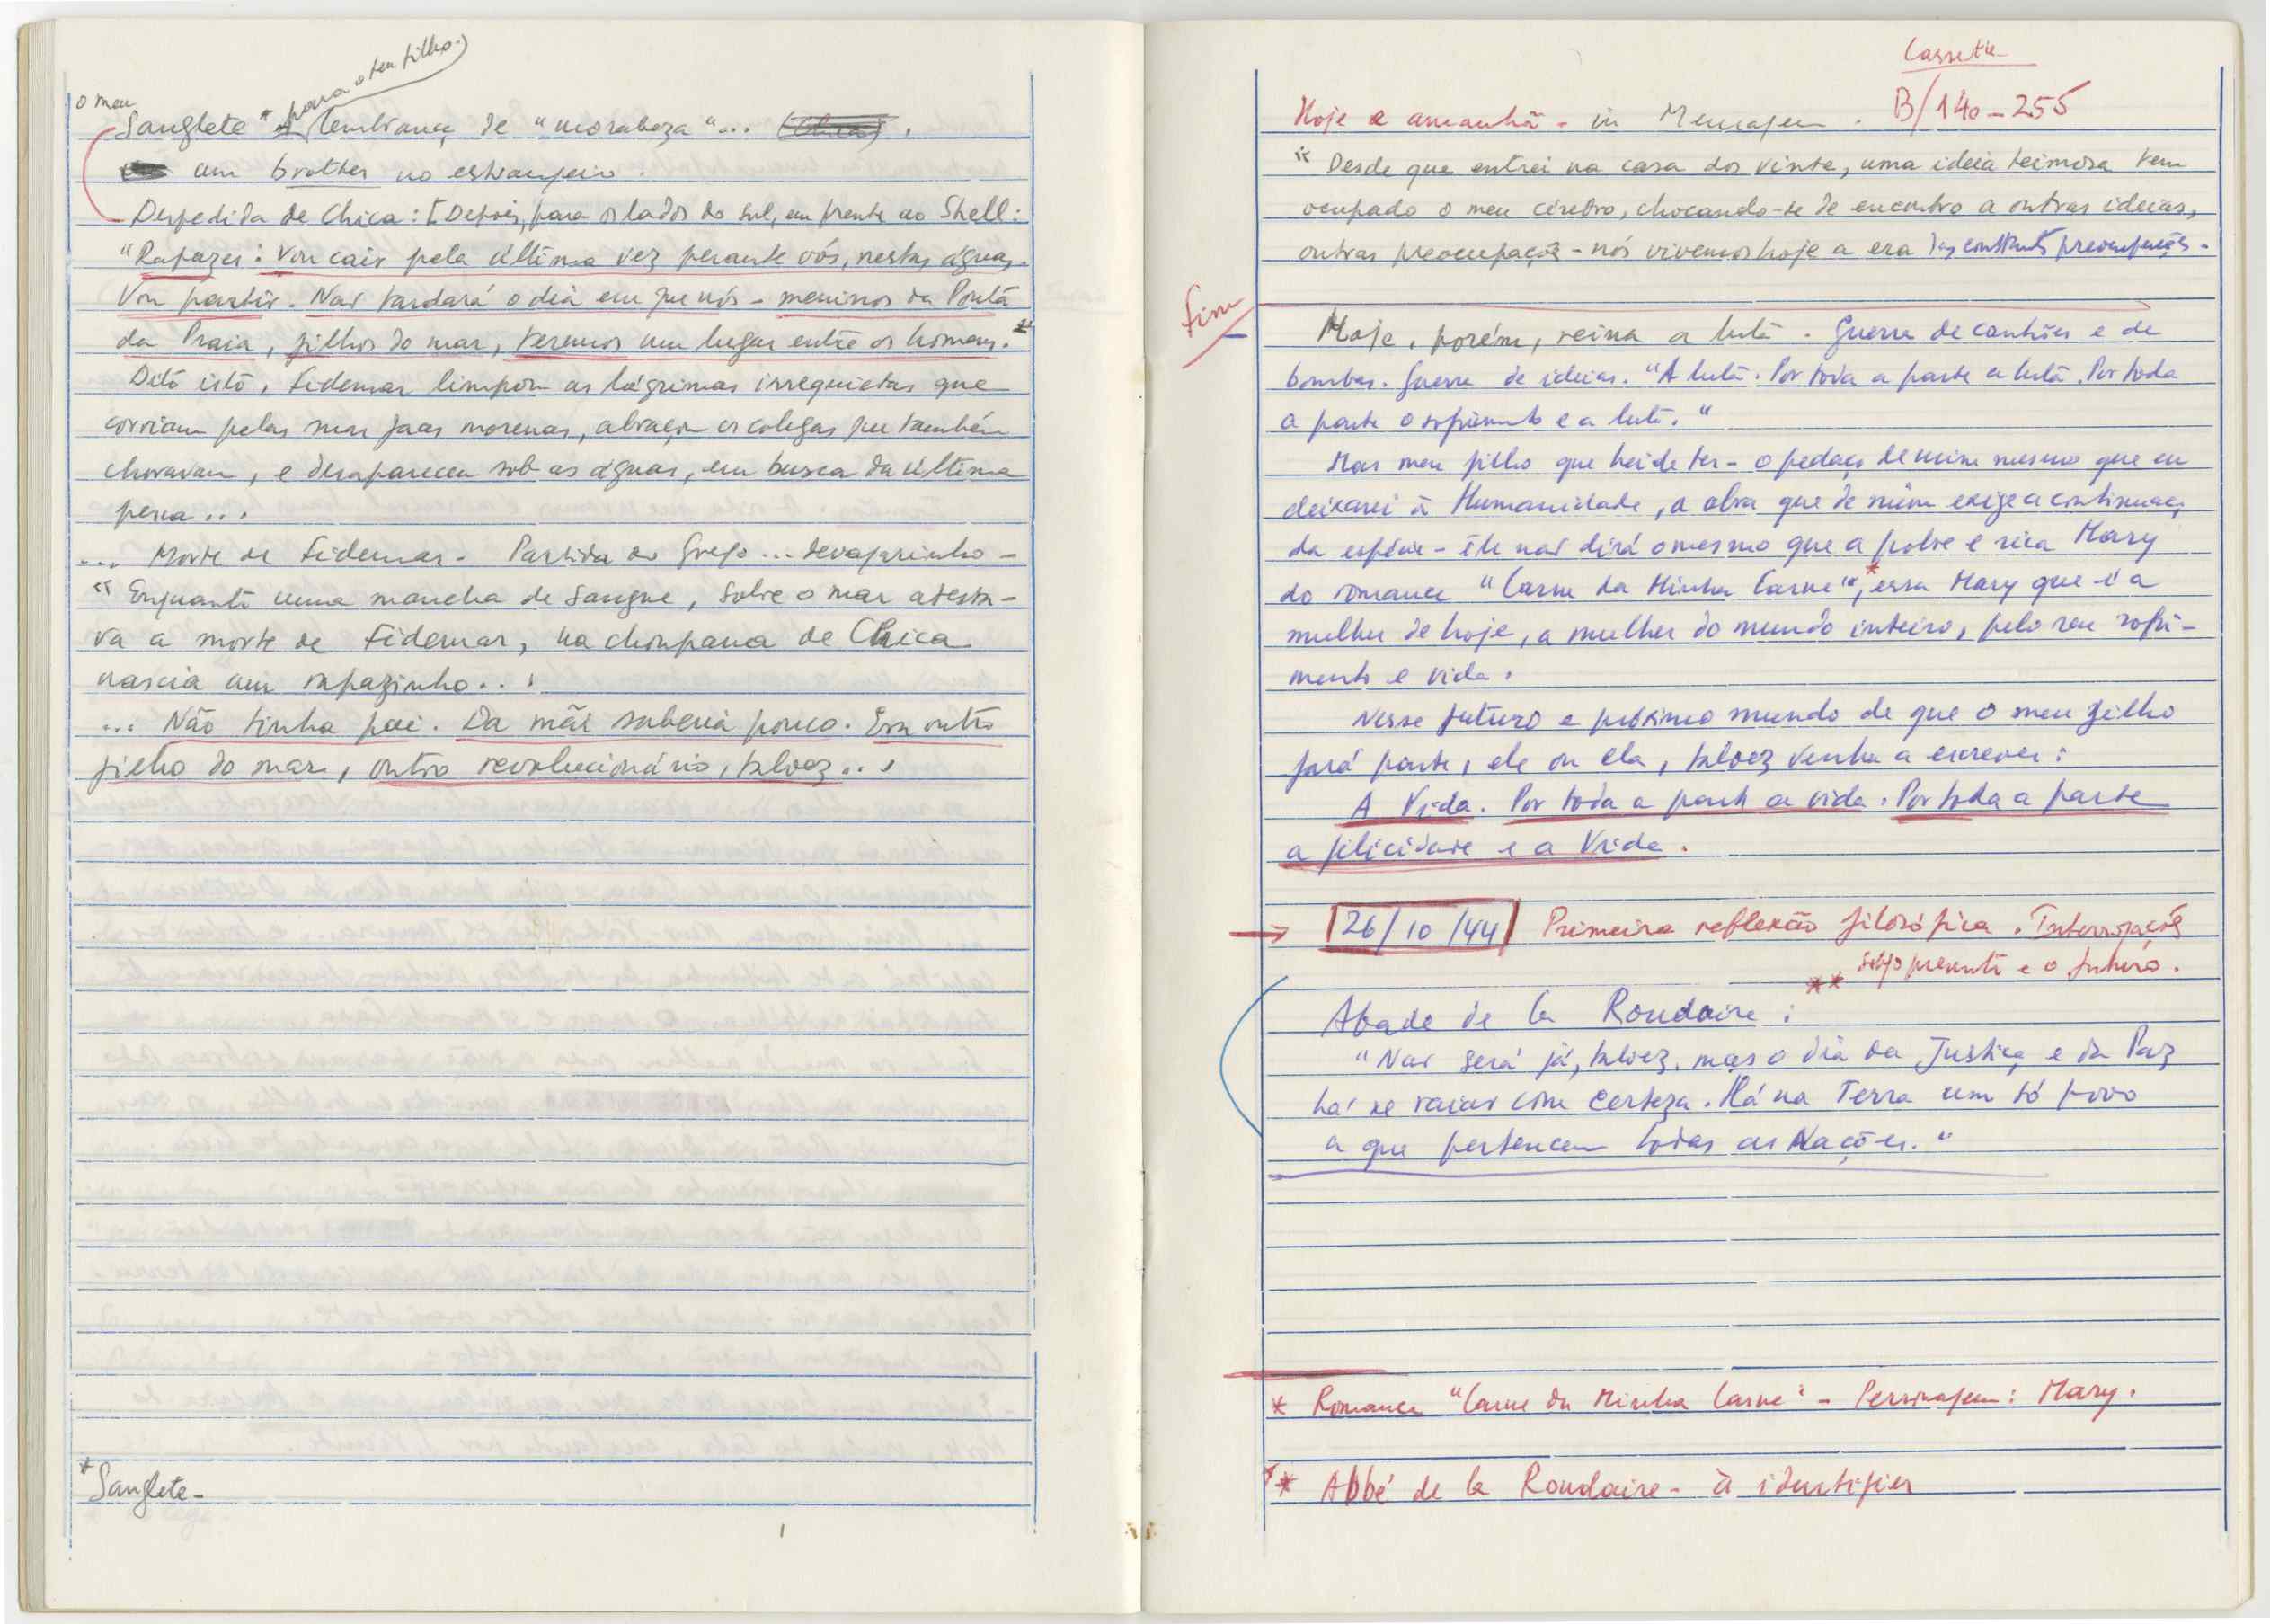 o meu
para o teu filho.)
Sanglete * lembrança de "morabeza"...
um brother no estrangeiro.
Despedida de Chica: [Depois, para os lados do sul, em frente ao Shell:
"Rapazes: Vou cair pela última vez perante vós, nestas águas.
Vou partir. Não tardará o dia em que nós - meninos da Ponta
da Praia, filhos do mar, teremos um lugar entre os homens."
Dito isto, Fidemar limpou as lágrimas irrequietas que
corriam pelas suas faces morenas, abraçou os colegas que também
choravam, e desapareceu sob as águas, em busca da última
pesca...
... Morte de Fidemar - Partida do Grego... devagarinho -
"Enquanto uma mancha de sangue, sobre o mar atesta-
va a morte de Fidemar, na choupana de Chica
nascia um rapazinho...
... Não tinha pai. Da mãe saberia pouco. Era outro
filho do mar, outro revolucionário, talvez...
* Sanglete -
Cassette
Hoje e amanhã - in Mensagem. B/140-255
"Desde que entrei na casa dos vinte, uma ideia teimosa tem
ocupado o meu cérebro, chocando-se de encontro a outras ideias,
outras preocupações - nós vivemos hoje a era das constantes preocupações -
fim
Hoje, porém, reina a luta. Guerra de canhões e de
bombas. Guerra de ideias. "A luta. Por toda a parte a luta. Por toda
a parte o sofrimento e a luta."
Mas meu filho que hei de ter - o pedaço de mim mesmo que eu
deixarei à Humanidade, a obra que de mim exige a continuação
da espécie - êle não dirá o mesmo que a pobre e rica Mary
do romance "Carne da Minha Carne"*, essa Mary que é a
mulher de hoje, a mulher do mundo inteiro, pelo seu sofri-
mento e vida.
Nesse futuro e próximo mundo de que o meu filho
fará parte, ele ou ela, talvez venha a escrever:
A Vida. Por toda a parte a vida. Por toda a parte
a felicidade e a Vida.
→ 26/10/44 Primeira reflexão filosófica. Interrogações
s/o presente e o futuro.
**
Abade de la Roudaire:
"Não será já, talvez, mas o dia da Justiça e da Paz
há-de raiar com certeza. Há na Terra um só povo
a que pertencem todas as Nações."
* Romance "Carne da Minha Carne" - Personagem: Mary.
** Abbé de la Roudaire - à identifier